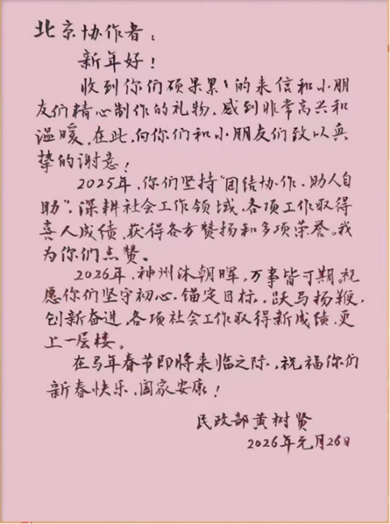 北京协作者：
新年好！
收到你们硕果累累的来信和小朋
友们精心制作的礼物，感到非常高兴和
温暖，在此，向你们和小朋友们致以真
挚的谢意！
2025年，你们坚持“团结协作，助人自
助”，深耕社会工作领域，各项工作取得
喜人成绩，获得各方赞扬和多项荣誉。我
为你们点赞。
2026年，神州沐朝晖，万事皆可期。祝
愿你们坚守初心，锚定目标，跃马扬鞭，
创新奋进，各项社会工作取得新成绩，更
上一层楼。
在马年春节即将来临之际，祝福你们
新春快乐，阖家安康！
民政部黄树贤
2026年元月26日